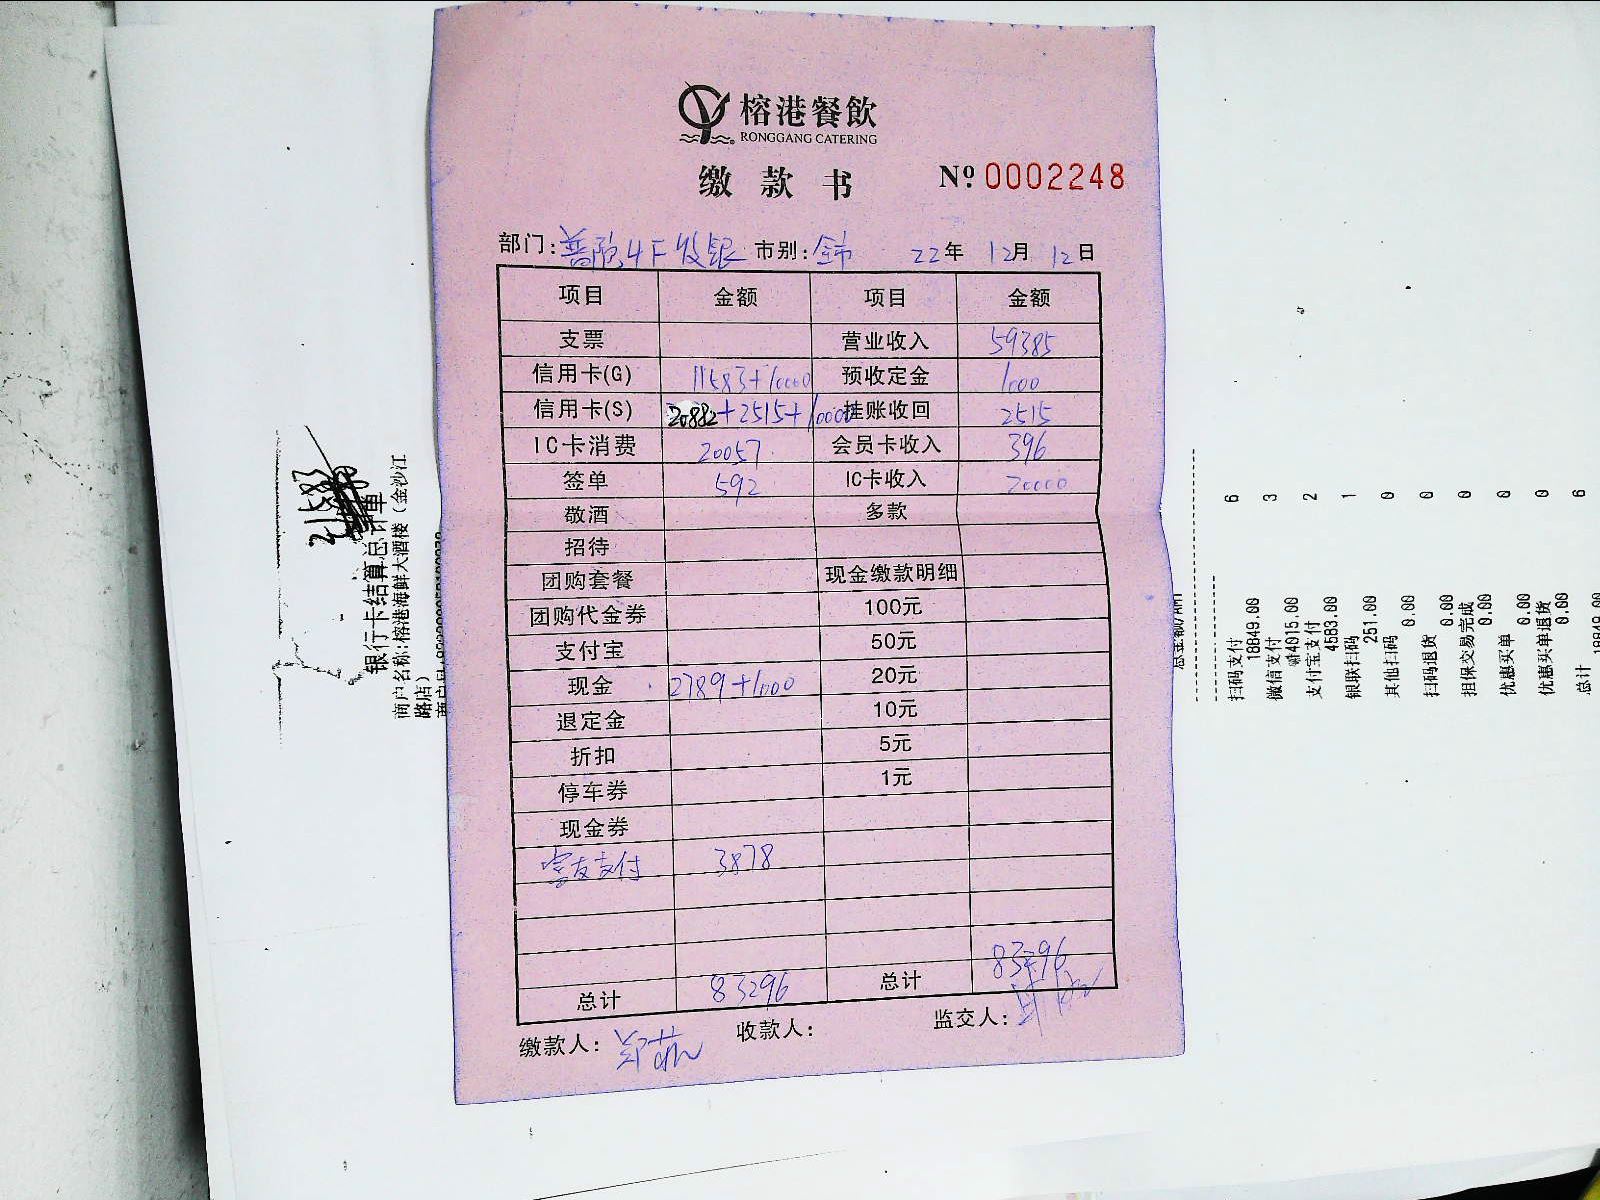 榕港餐飲
RONGGANG CATERING
缴款书 № 0002248
部门: 普陀4F 收银 市别: 全市 22年 12月 12日
项目 金额 项目 金额
支票 营业收入 59385
信用卡(G) 11583+10000 预收定金 1000
信用卡(S) 20882+2515+10000 挂账收回 2515
IC卡消费 20057 会员卡收入 396
签单 592 IC卡收入 20000
敬酒 多款
招待
团购套餐 现金缴款明细
团购代金券 100元
支付宝 50元
现金 2789+1000 20元
退定金 10元
折扣 5元
停车券 1元
现金券
支付 3878
总计 83296 总计 83296
缴款人: 收款人: 监交人:
21583
银行卡结算总计单
商户名称:榕港海鲜大酒楼(金沙江
路店)
扫码支付 6
18849.00
微信支付 3
4015.00
支付宝支付 2
4583.00
银联扫码 1
251.00
其他扫码 0
0.00
扫码退货 0
0.00
担保交易完成 0
0.00
优惠买单 0
0.00
优惠买单退货 0
0.00
总计 6
18849.00